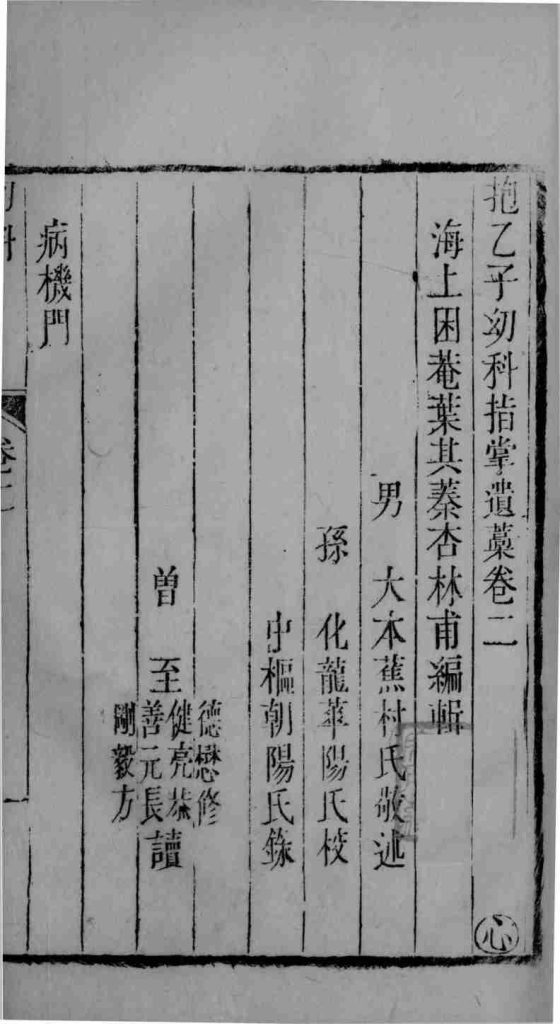 抱乙子幼科指掌遺藁卷二
心
海上困菴葉其蓁杏林甫編輯
男 大本蕉村氏敬述
孫 化龍陽氏校
中樞朝陽氏錄
曾 至
德懋修
健亮恭
善元長
剛毅方
讀
病機門
卷二
一